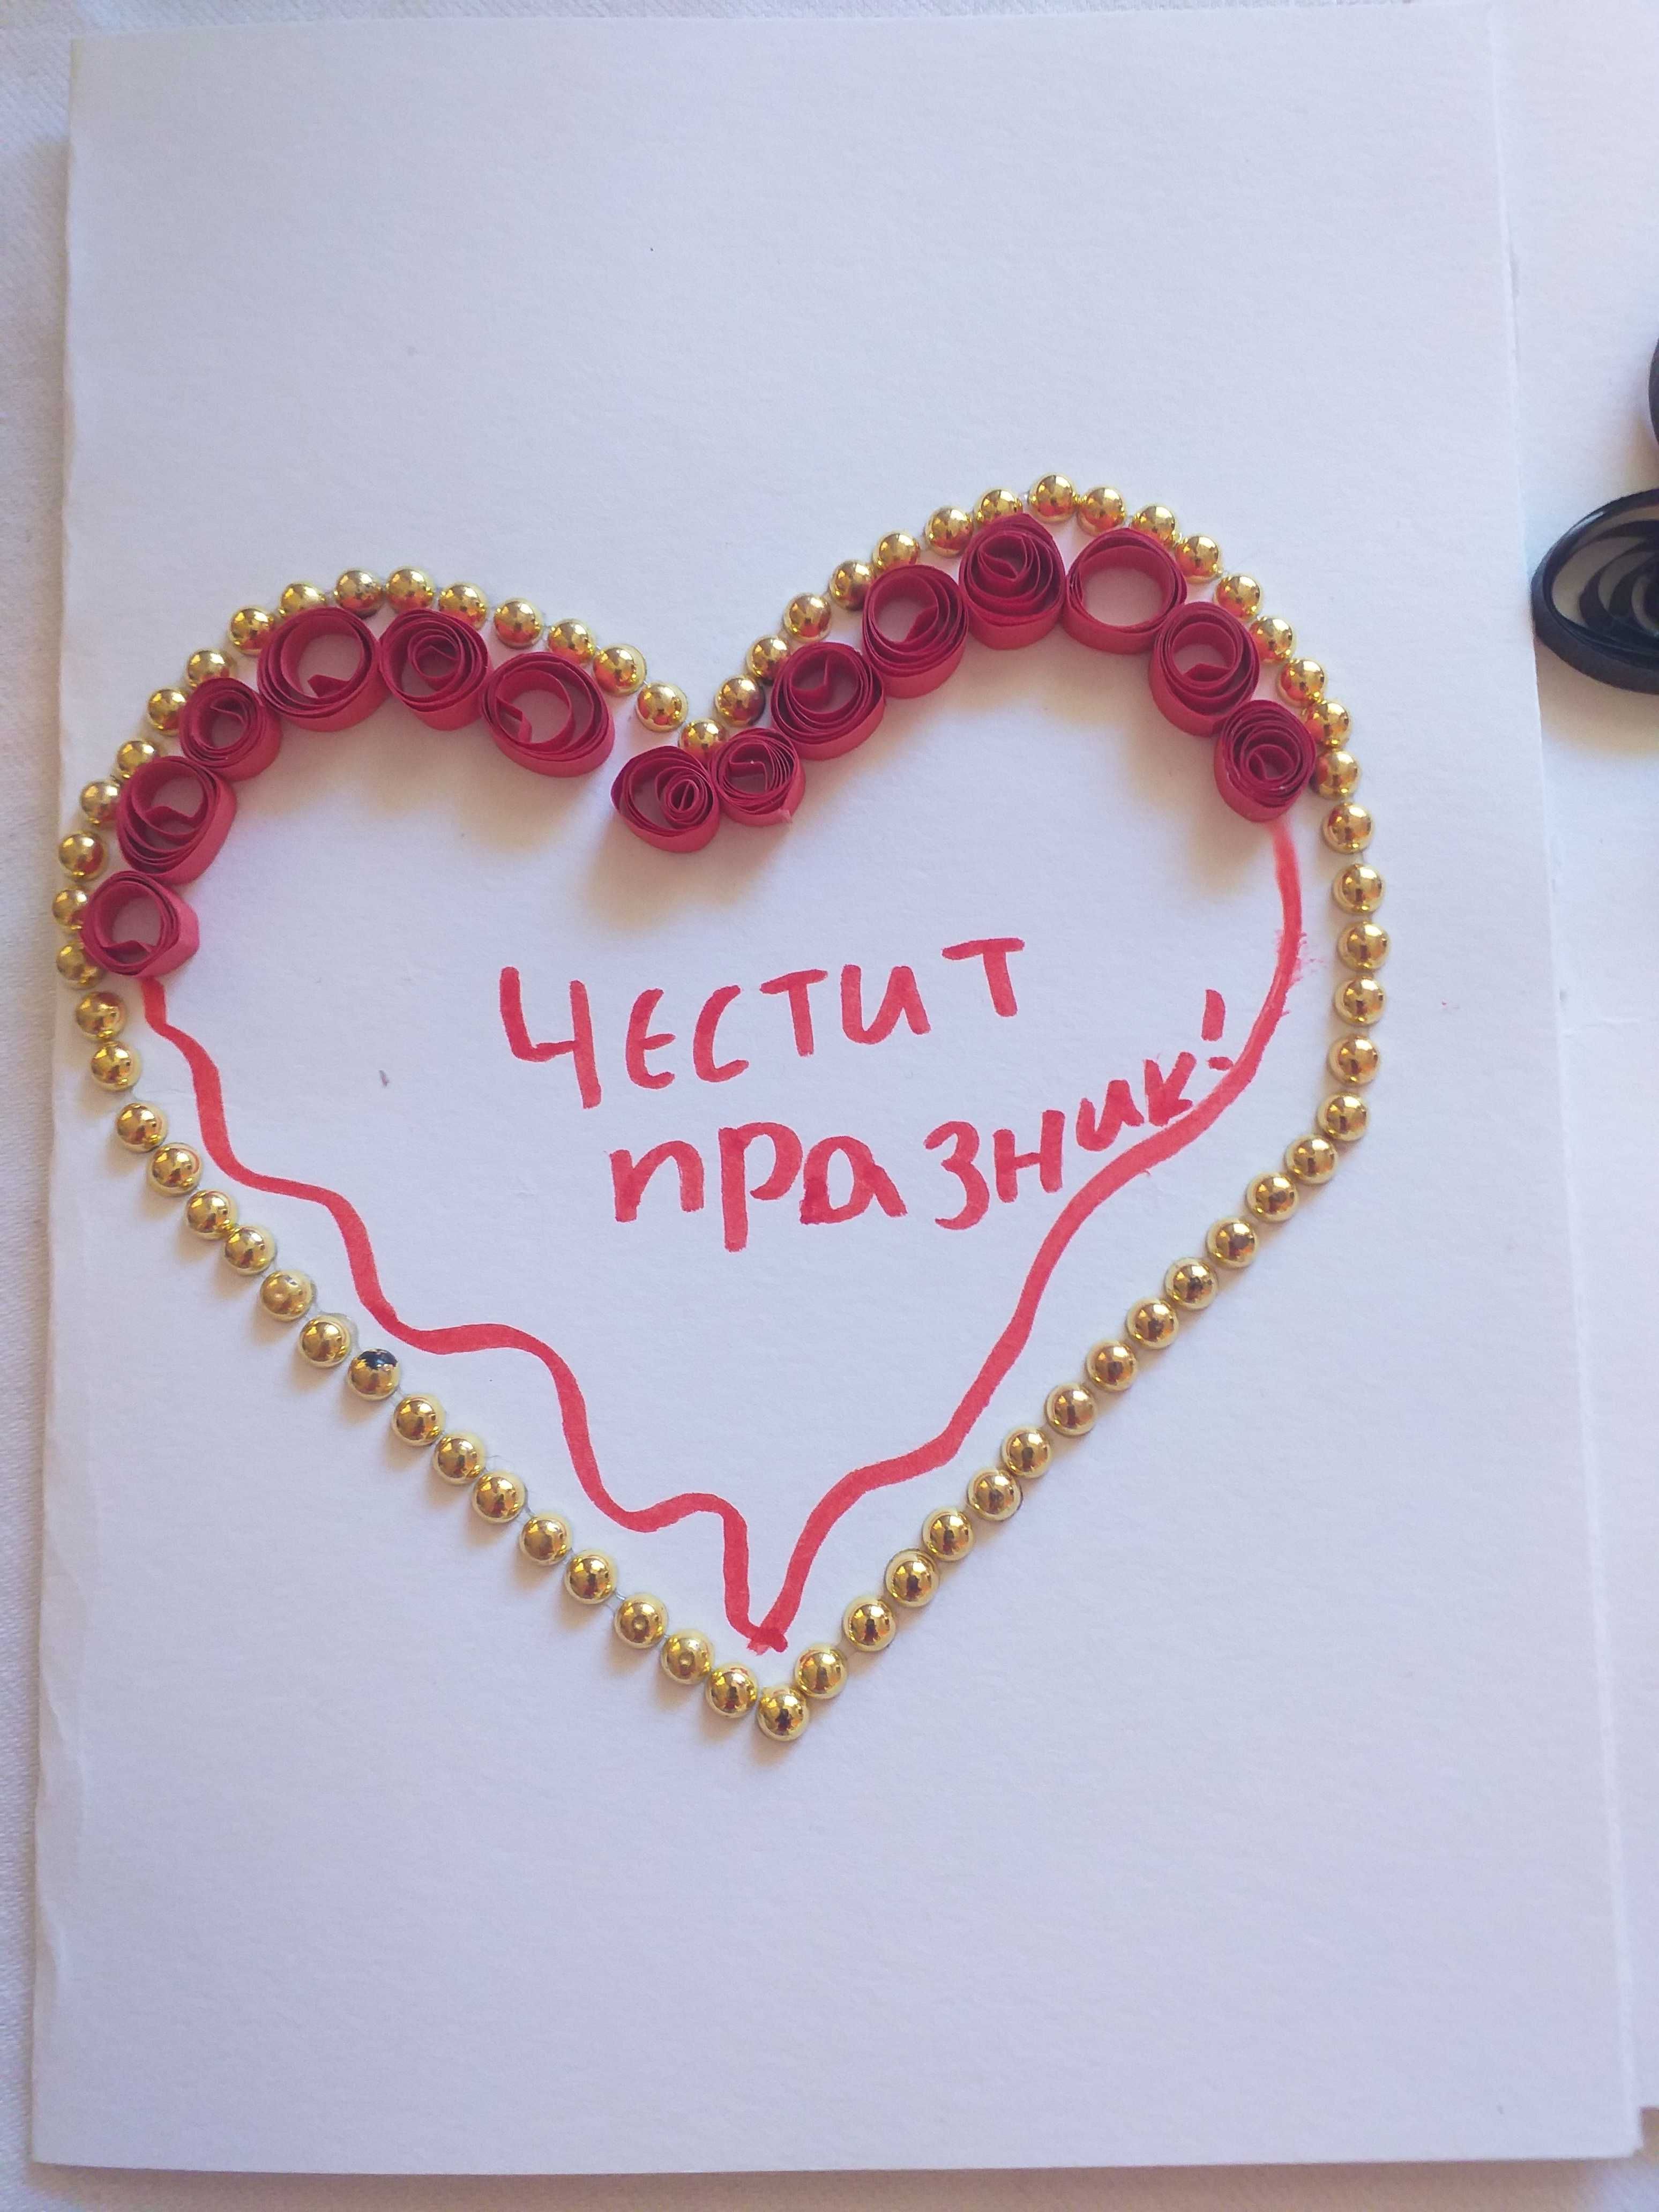 Честит
празник!